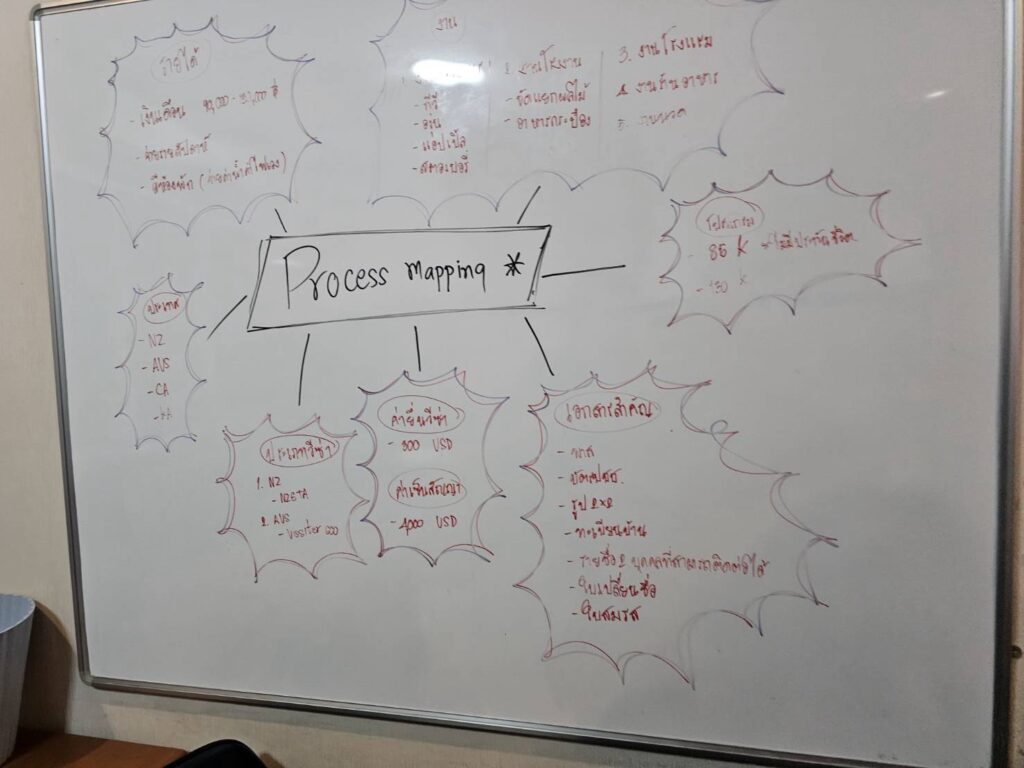 รายได้
- เงินเดือน
- จ่ายรายสัปดาห์
- มีห้องพัก (จ่ายค่าน้ำค่าไฟเอง)
งาน
- กีวี่
- องุ่น
- แอปเปิ้ล
- สตอเบอรี่
2. งานโรงงาน
- คัดแยกผลไม้
- อาหารกระป๋อง
3. งานโรงแรม
4. งานร้านอาหาร
5. งานนวด
Process mapping *
โปรแกรม
- 85 K * ไม่มีประกันชีวิต
- 130 K
ประเทศ
- NZ
- AUS
- CA
ประเภทวีซ่า
1. NZ
- NZETA
2. AUS
- Vositer 600
ค่ายื่นวีซ่า
- 300 USD
ค่าเซ็นสัญญา
- 4000 USD
เอกสารสำคัญ
- พาส
- บัตรปชช.
- รูป 2x2
- ทะเบียนบ้าน
- รายชื่อ 2 บุคคลที่สามารถติดต่อได้
- ใบเปลี่ยนชื่อ
- ใบสมรส